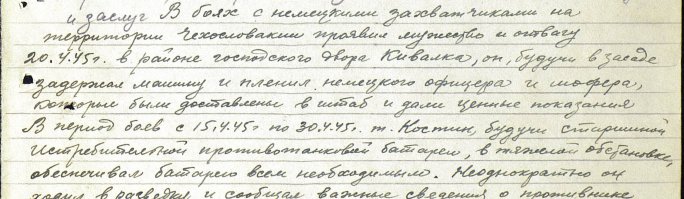 и заслуг В боях с немецкими захватчиками на
территории Чехословакии проявил мужество и отвагу
20.4.45г. в районе господского двора Кивалка, он, будучи в засаде
задержал машину и пленил немецкого офицера и шофера,
которые были доставлены в штаб и дали ценные показания
В период боев с 15.4.45г по 30.4.45г. т. Костин, будучи старшиной
истребительной противотанковой батареи, в тяжелой обстановке,
обеспечивал батарею всем необходимым. Неоднократно он
ходил в разведку и сообщал важные сведения о противнике